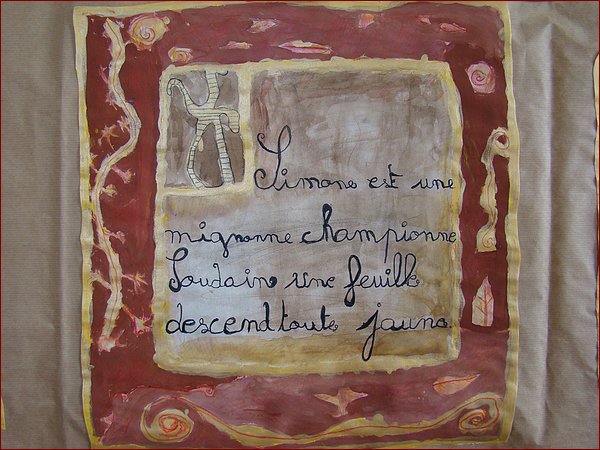 Simone est une
mignonne championne
Soudain une feuille
descend toute jaune.